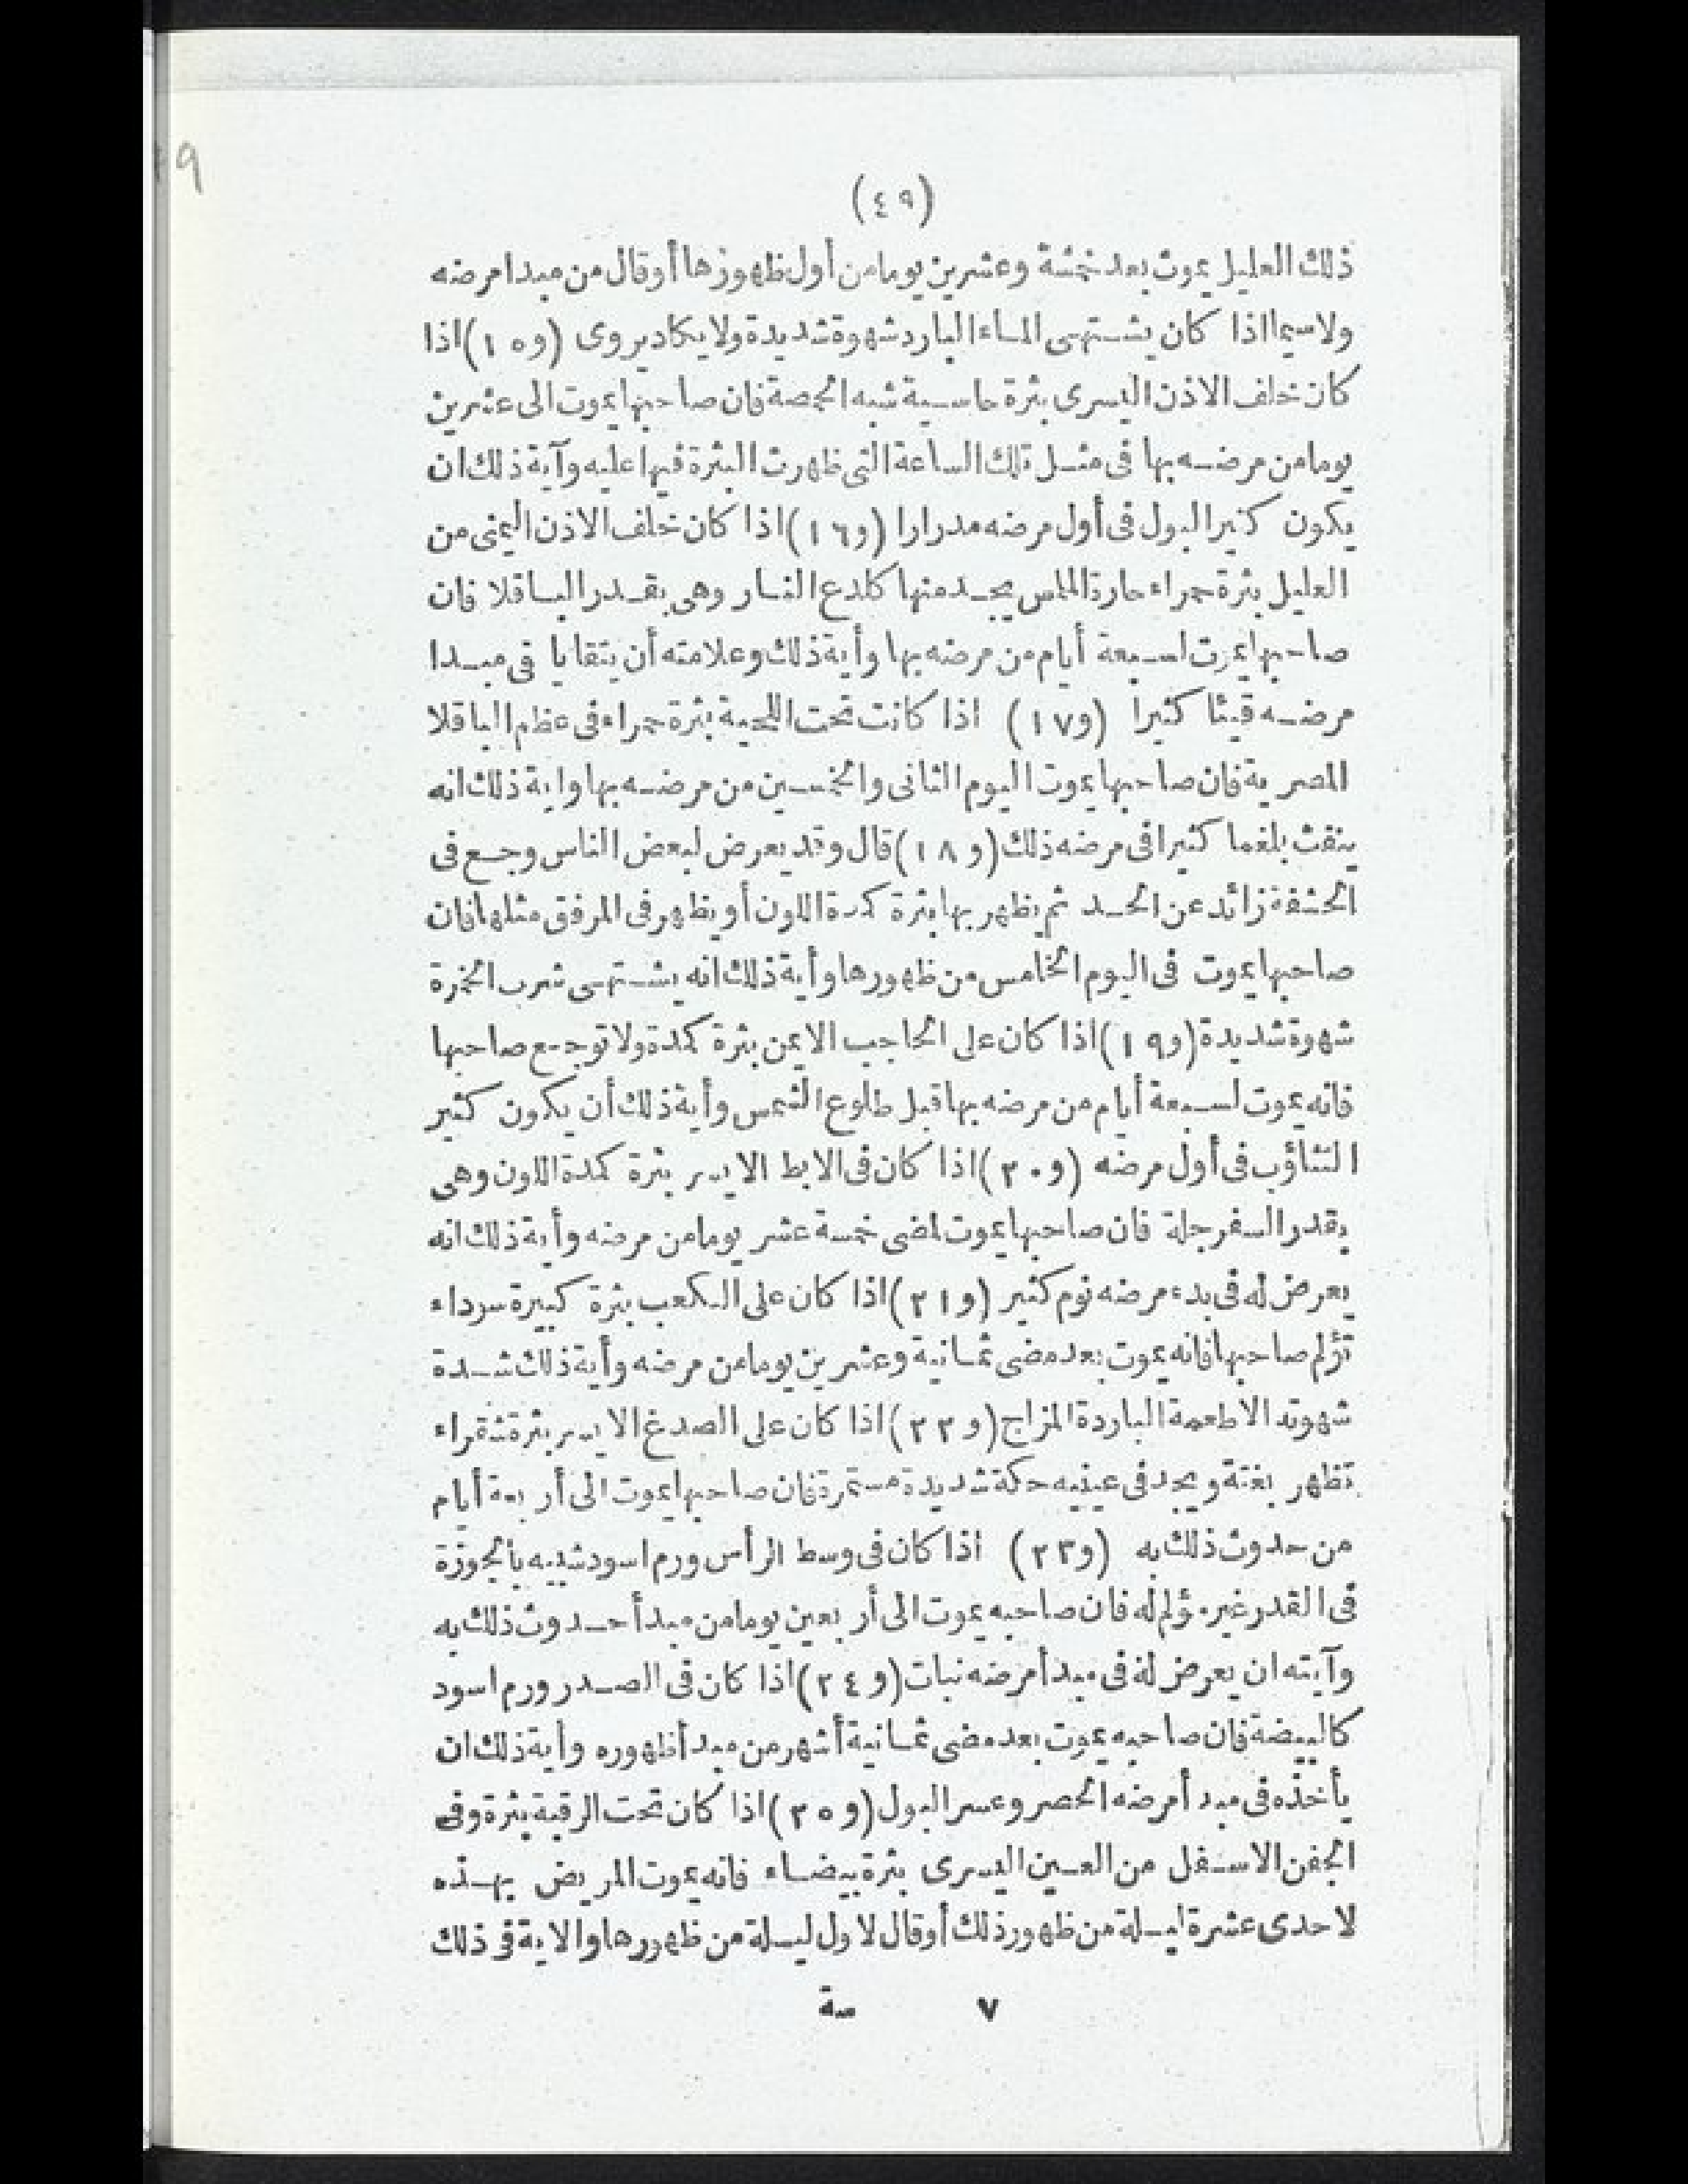 9
(٤٩)
ذلك العليل يموت بعد خمسة وعشرين يوما من أول ظهورها أو قال من مبدا مرضه
ولاسيما اذا كان يشتهى الماء البارد شهوة شديدة ولا يكاد يروى (و١٥) اذا
كان خلف الاذن اليسرى بثرة جاسية شبه الحمصة فان صاحبها يموت الى عشرين
يوما من مرضه بها فى مثل تلك الساعة التى ظهرت البثرة فيها عليه وآية ذلك ان
يكون كثير البول فى أول مرضه مدرارا (و١٦) اذا كان خلف الاذن اليمنى من
العليل بثرة حمراء حارة الملمس يجد منها كلدع النار وهى بقدر الباقلا فان
صاحبها يموت لسبعة أيام من مرضه بها وأية ذلك وعلامته أن يتقايا فى مبدا
مرضه قيئا كثيرا (و١٧) اذا كانت تحت اللحية بثرة حمراء فى عظم الباقلا
المصرية فان صاحبها يموت اليوم الثانى والخمسين من مرضه بها واية ذلك انه
ينفث بلغما كثيرا فى مرضه ذلك (و١٨) قال وقد يعرض لبعض الناس وجع فى
الحشفة زائد عن الحد ثم يظهر بها بثرة كدرة اللون أو يظهر فى المرفق مثلها فان
صاحبها يموت فى اليوم الخامس من ظهورها وأية ذلك انه يشتهى شرب الخمرة
شهوة شديدة (و١٩) اذا كان على الحاجب الايمن بثرة كمدة ولا توجع صاحبها
فانه يموت لسبعة أيام من مرضه بها قبل طلوع الشمس وأية ذلك أن يكون كثير
التثاؤب فى أول مرضه (و٢٠) اذا كان فى الابط الايسر بثرة كمدة اللون وهى
بقدر السفرجلة فان صاحبها يموت لمضى خمسة عشر يوما من مرضه وأية ذلك انه
يعرض له فى بدء مرضه نوم كثير (و٢١) اذا كان على الكعب بثرة كبيرة سوداء
تؤلم صاحبها فانه يموت بعد مضى ثمانية وعشرين يوما من مرضه وأية ذلك شدة
شهوته الاطعمة الباردة المزاج (و٢٢) اذا كان على الصدغ الايسر بثرة شقراء
تظهر بغتة ويجد فى عينيه حكة شديدة مستمرة فان صاحبها يموت الى أربعة أيام
من حدوث ذلك به (و٢٣) اذا كان فى وسط الرأس ورم اسود شبيه بالجوزة
فى القدر غير مؤلم له فان صاحبه يموت الى أربعين يوما من مبدأ حدوث ذلك به
وآيته ان يعرض له فى مبدأ مرضه نبات (و٢٤) اذا كان فى الصدر ورم اسود
كالبيضة فان صاحبه يموت بعد مضى ثمانية أشهر من مبدأ ظهوره وأية ذلك ان
يأخذه فى مبدأ مرضه الحصر وعسر البول (و٢٥) اذا كان تحت الرقبة بثرة وفى
الجفن الاسفل من العين اليسرى بثرة بيضاء فانه يموت المريض بهذه
لاحدى عشرة ليلة من ظهور ذلك أو قال لاول ليلة من ظهورها والاية فى ذلك
٧ صة